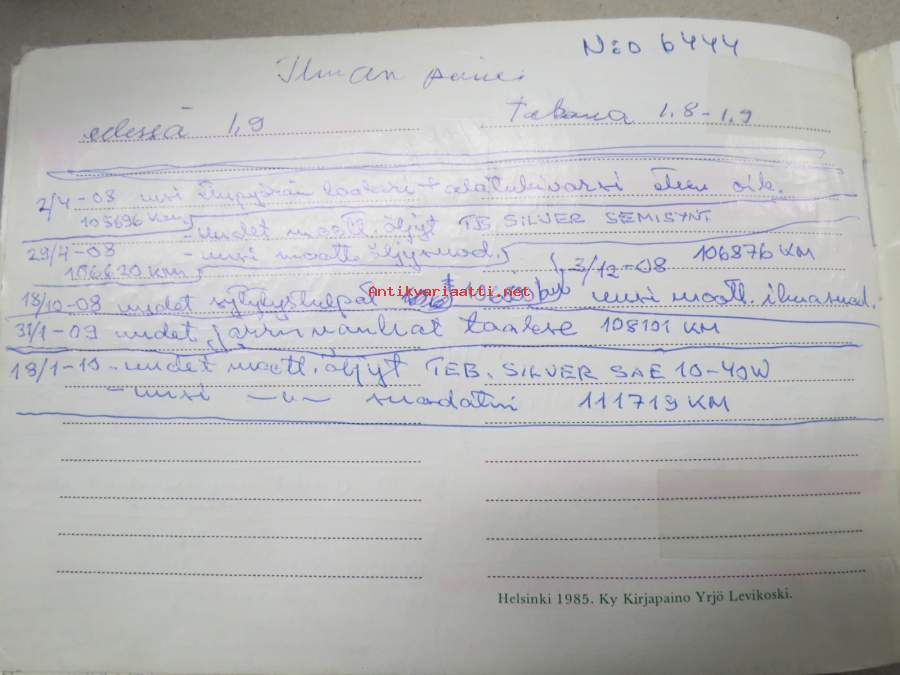 N:o 6444
Ilman paine
edessä 1,9 takana 1,8-1,9
2/4-08 uusi etupyörän laakeri + alatukivarsi eteen oik.
105696 km
-uudet moott. öljyt TEB SILVER SEMISYNT
29/4-08 -uusi moott. öljysuod.
106620 km
3/12-08 106876 KM
18/10-08 uudet sytytystulpat
uusi moott. ilmasuod.
31/1-09 uudet jarrunauhat taakse 108191 KM
18/1-10 -uudet moott. öljyt TEB. SILVER SAE 10-40W
-uusi -"- suodatin 111719 KM
Antikvariaatti.net
Helsinki 1985. Ky Kirjapaino Yrjö Levikoski.